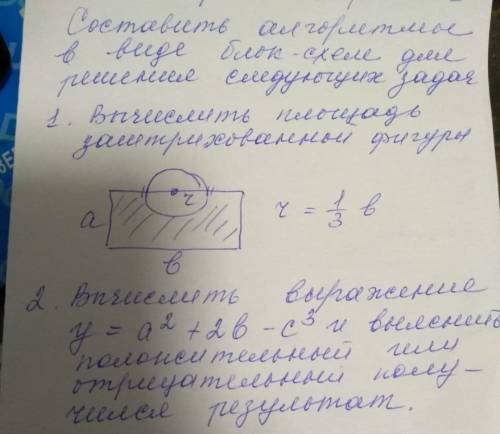 Составить алгоритмы
в виде блок-схем для
решения следующих задач
1. Вычислить площадь
заштрихованной фигуры
r
a
r = 1/3 в
в
2. Впчислить выражение
y = a² + 2в - c³ и выяснить
положительный или
отрицательный полу-
чился результат.